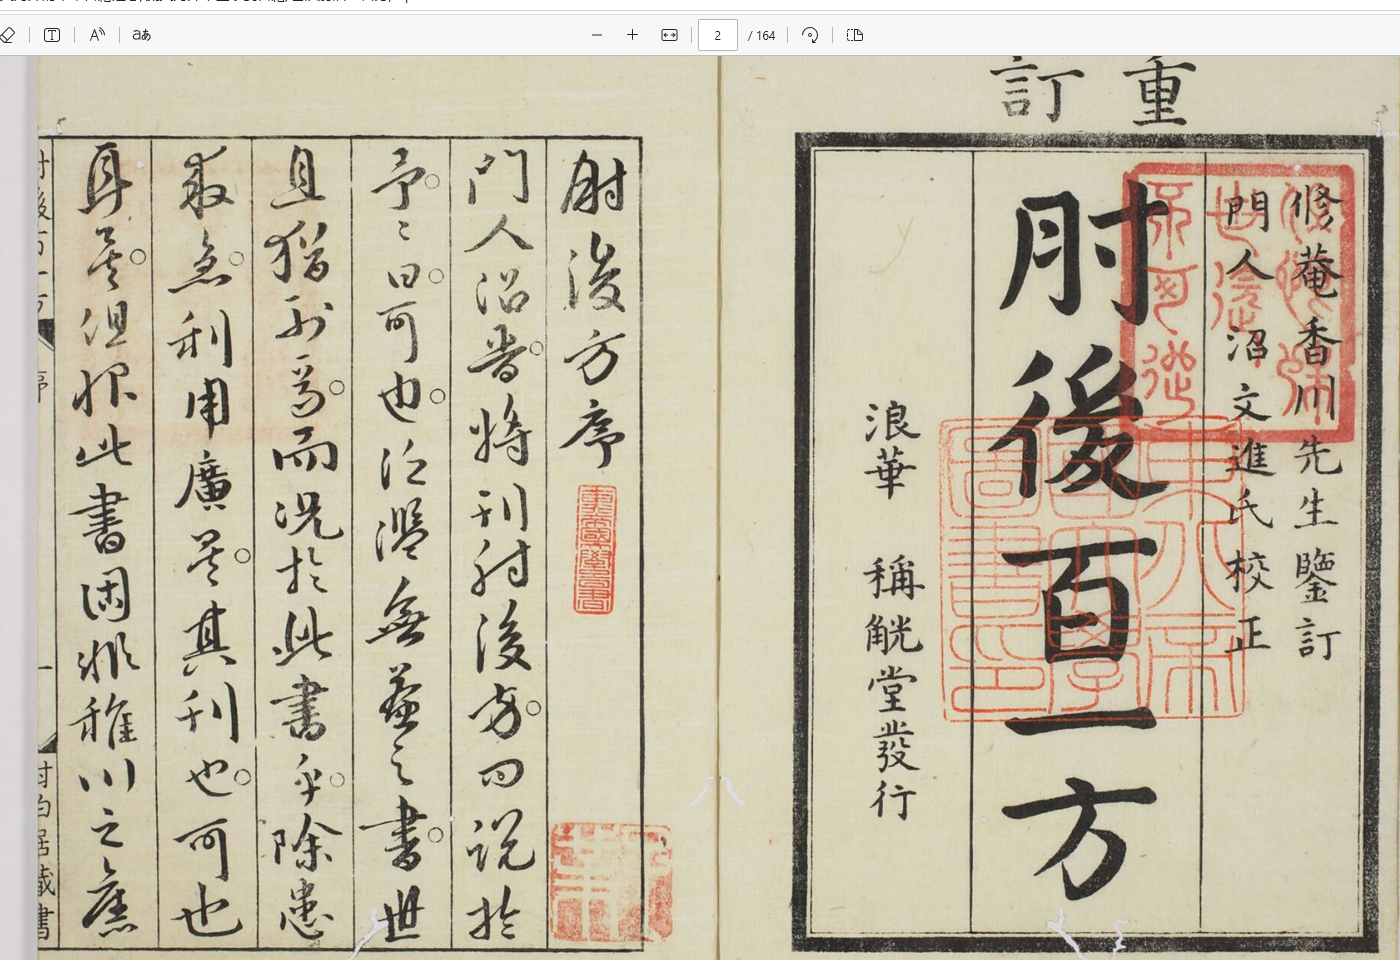 2 / 164
aあ
重訂
修菴香川先生鑒訂
門人沼文進氏校正
肘後百一方
浪華 稱觥堂發行
肘後方序
門人沼晋將刊肘後方問説於
予〻曰可也泛濫無益之書世
且猶刊焉而況於此書乎除患
救急利用廣矣其刊也可也
耳矣但恨此書固非稚川之舊